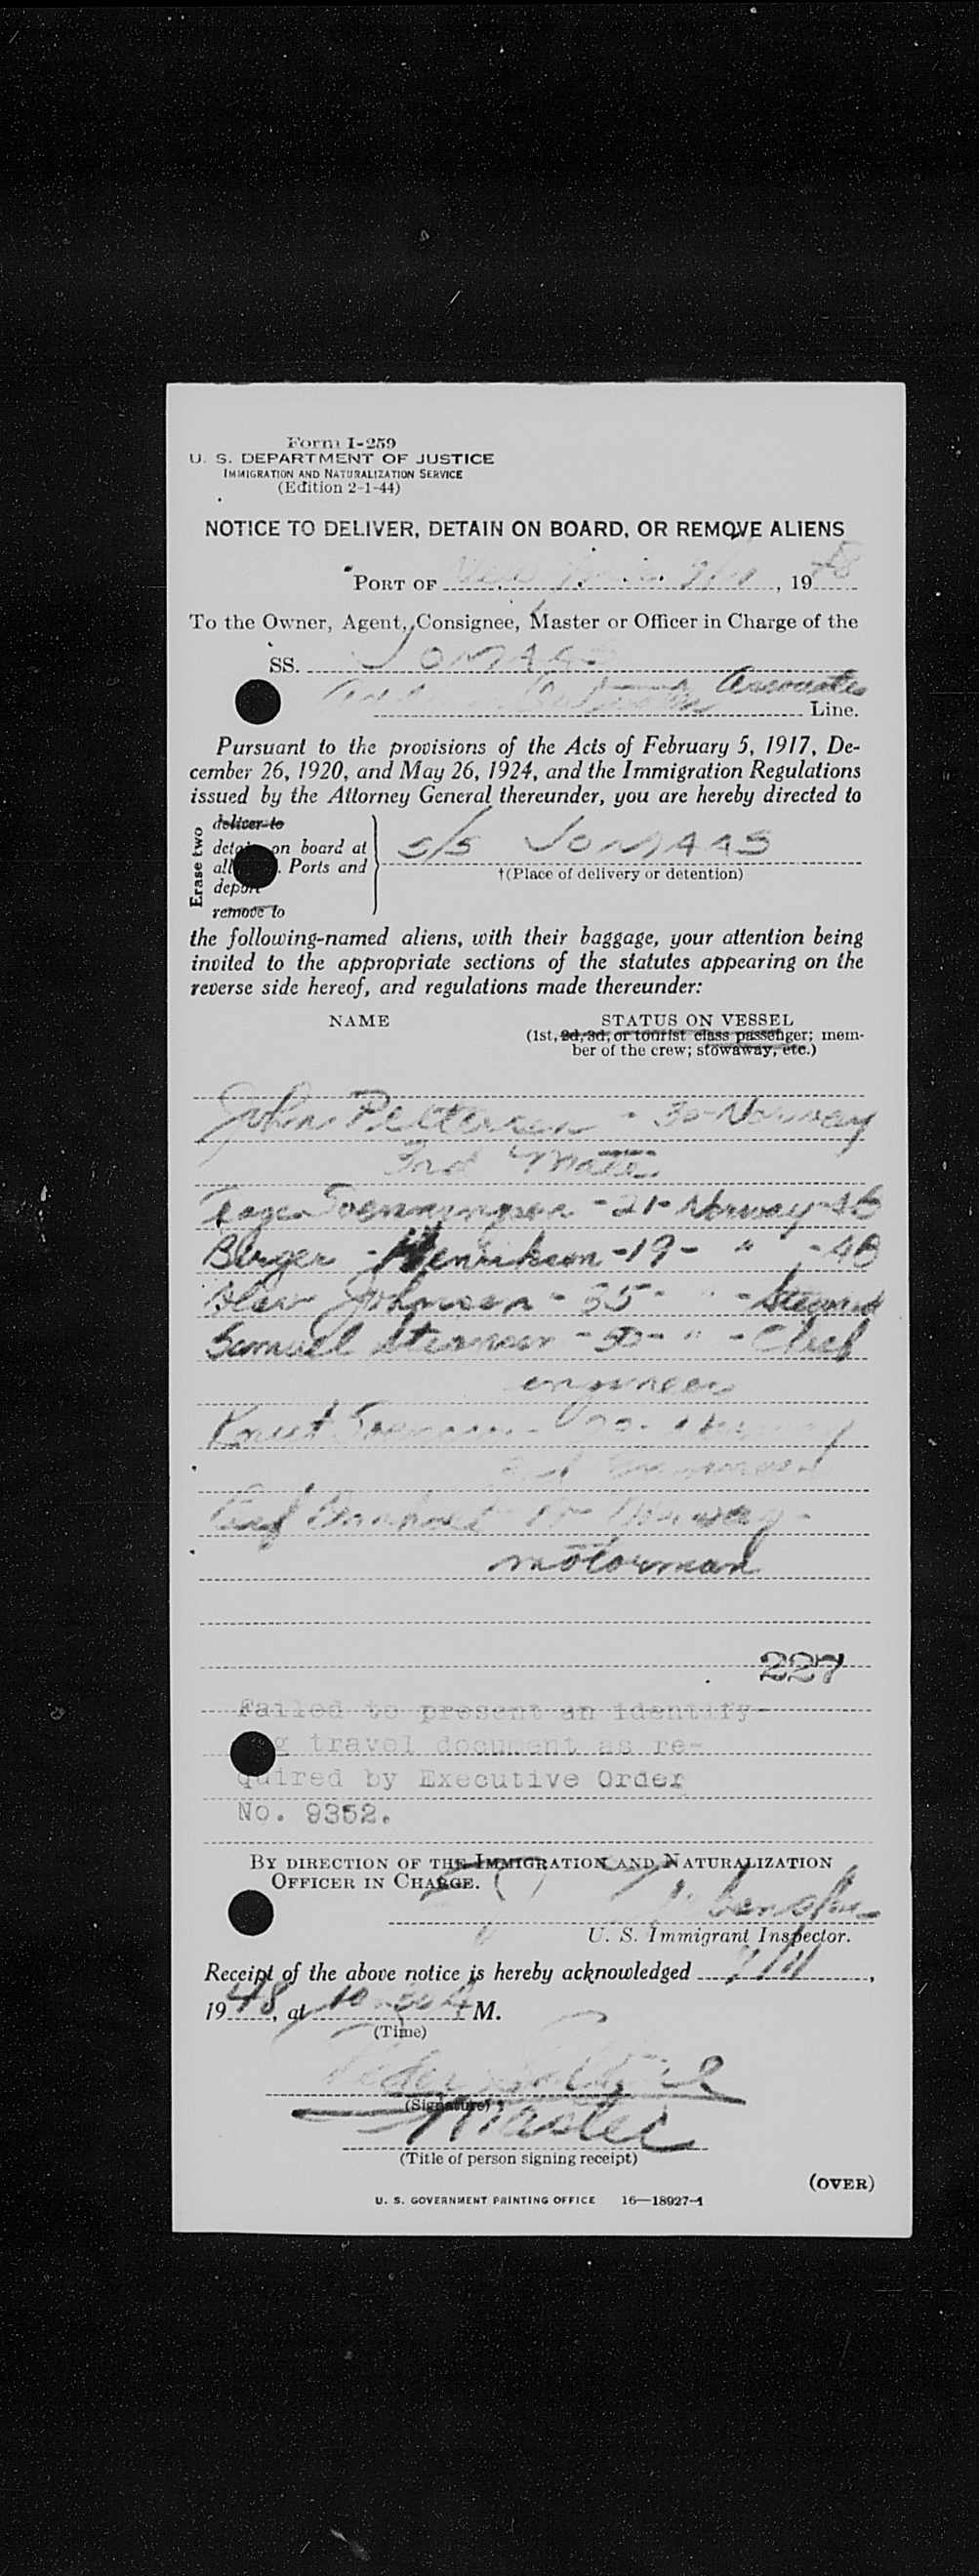 Form I-259
U. S. DEPARTMENT OF JUSTICE
IMMIGRATION AND NATURALIZATION SERVICE
(Edition 2-1-44)
NOTICE TO DELIVER, DETAIN ON BOARD, OR REMOVE ALIENS
PORT OF New 7/11, 1948
To the Owner, Agent, Consignee, Master or Officer in Charge of the
SS. JOMAAS
Associates Line.
Pursuant to the provisions of the Acts of February 5, 1917, De-
cember 26, 1920, and May 26, 1924, and the Immigration Regulations
issued by the Attorney General thereunder, you are hereby directed to
Erase two
deliver to
detain on board at
all Ports and
deport
remove to
S/S JOMAAS
†(Place of delivery or detention)
the following-named aliens, with their baggage, your attention being
invited to the appropriate sections of the statutes appearing on the
reverse side hereof, and regulations made thereunder:
NAME STATUS ON VESSEL
(1st, 2d, 3d, or tourist class passenger; mem-
ber of the crew; stowaway, etc.)
John Pettersen - 30 - Norway
Mate
- 21 - Norway -
Birger - Henriksen - 19 - " -
Johnsen - 35 - " - Steward
Samuel - 50 - " - Chief
engineer
Knut
Norway -
motorman
227
Failed to present an identify-
g travel document as re-
quired by Executive Order
No. 9352.
BY DIRECTION OF THE IMMIGRATION AND NATURALIZATION
OFFICER IN CHARGE.
U. S. Immigrant Inspector.
Receipt of the above notice is hereby acknowledged 7/11,
1948, at 10 A M.
(Time)
(Signature)
Master
(Title of person signing receipt)
(OVER)
U. S. GOVERNMENT PRINTING OFFICE 16—18927-1